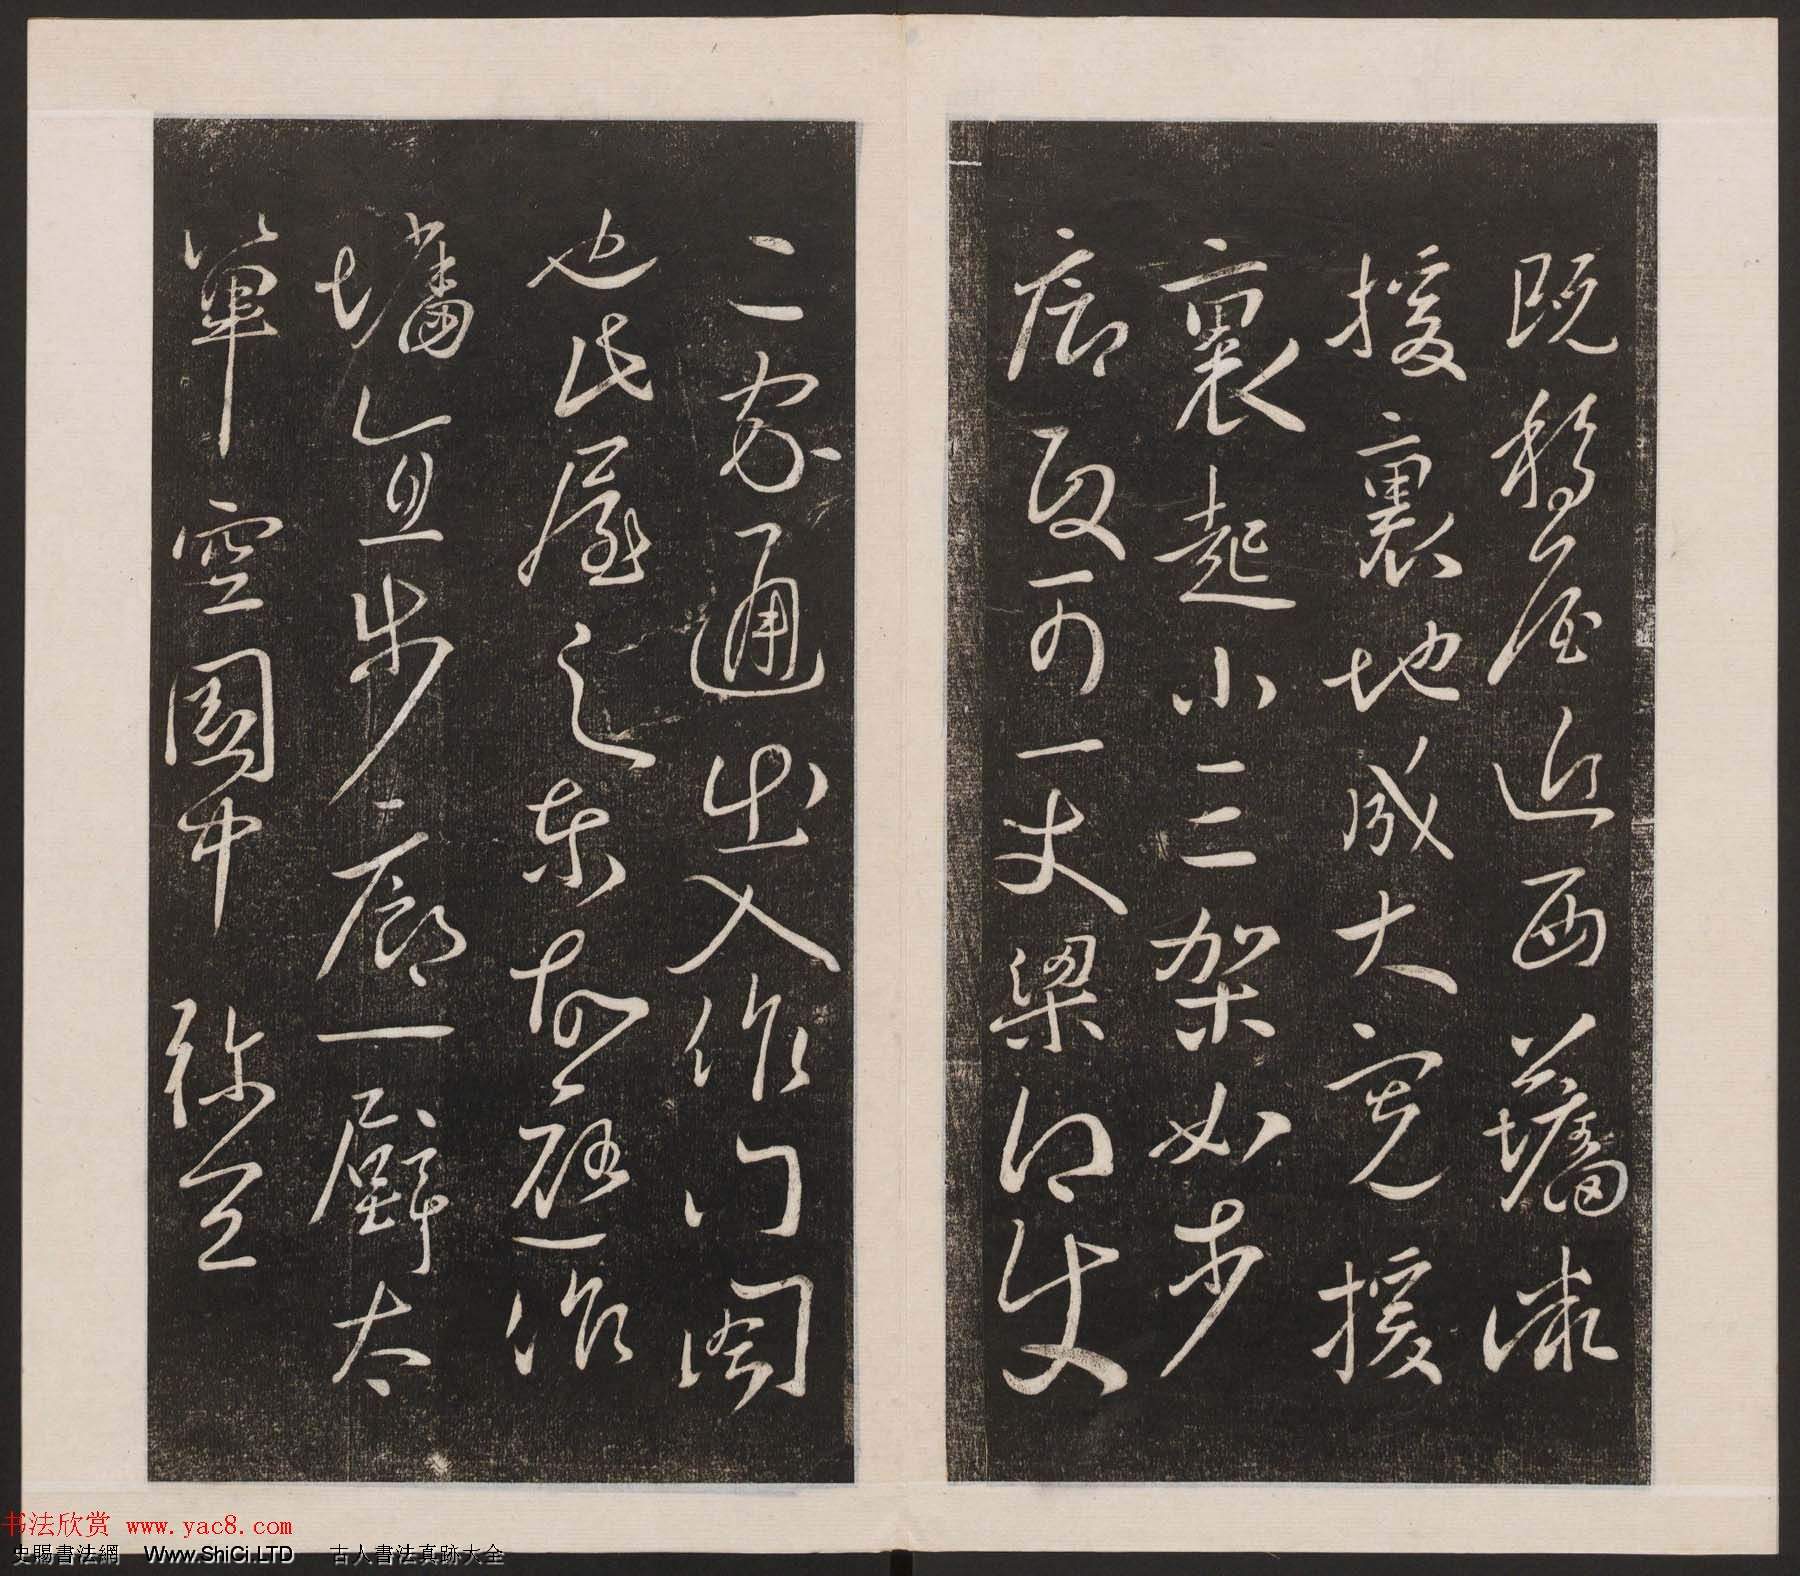 既移屋近西墻漸
援裏地成大寬援
裏起小三架如步
廊叚可一丈梁仍使
二家通出入作門閤
也此屋之東故應作
墻直步廊一壁太
單空園中弥宜
书法欣赏 www.yac8.com
史賜書法網 Www.ShiCi.LTD 古人書法真跡大全